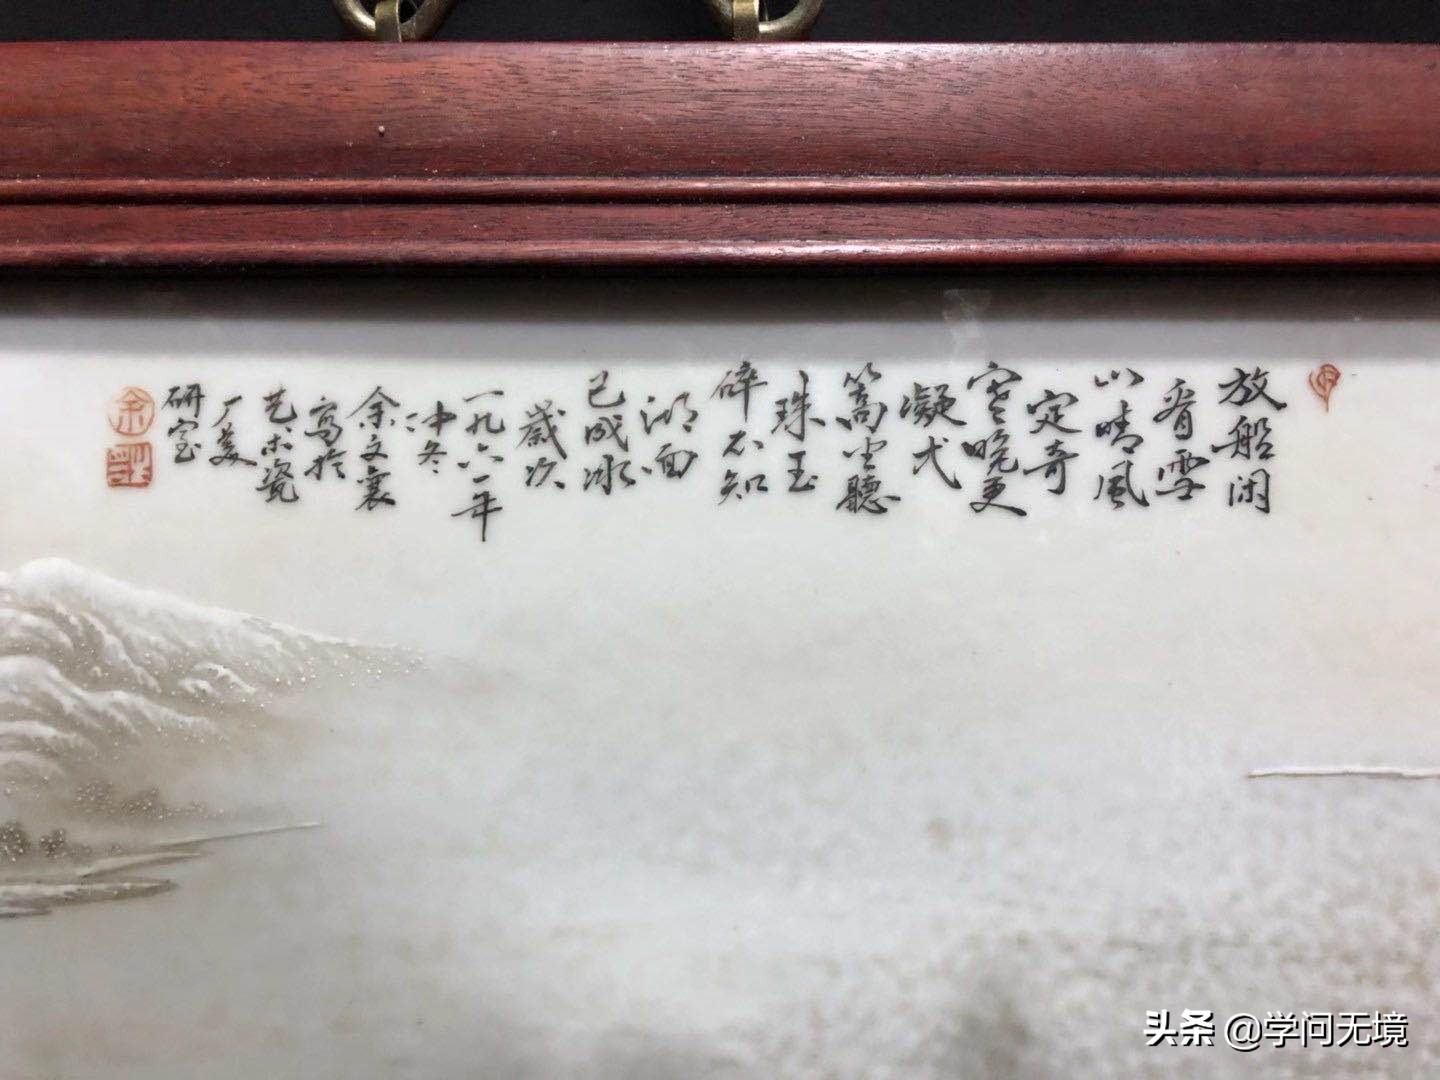 放船闲
看雪
山晴风
定奇
寒晚更
凝弋
篙坐聽
珠玉
碎不知
湖面
已成冰
歲次
一九六一年
冲冬
余文襄
寫於
艺术瓷
厂美
研室
余
头条 @学问无境